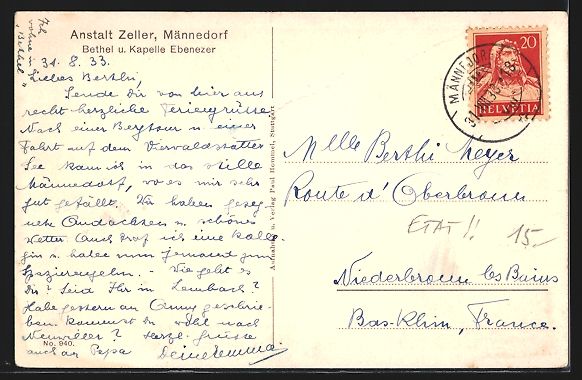 Anstalt Zeller, Männedorf
Bethel u. Kapelle Ebenezer
Ich
wohne in
"Bethel"
31. 8. 33.
Liebes Berthi,
Sende dir von hier aus
recht herzliche Feriengrüsse
Nach einer Bergtour u. einer
Fahrt auf dem Vierwaldstätter
See kam ich in das stille
Männedorf, wo es mir sehr
gut gefällt. Wir haben geseg-
nete Andachten u. schönes
Wetter. Auch traf ich eine Kolle-
gin u. habe nun Jemand zum
Spazierengehn. - Wie geht es
Dir? Seid Ihr in Lembach?
Habe gestern an Anny geschrie-
ben. kommst du wohl nach
Neuwiller? Herzl. Grüsse
auch an Papa Deine Emma.
No. 940.
Aufnahme u. Verlag Paul Hommel, Stuttgart
MÄNNEDORF
20
HELVETIA
Mlle Berthi Meyer
Route d'Oberbronn
ETAT!! 15.-
Niederbronn les Bains
Bas-Rhin, France.